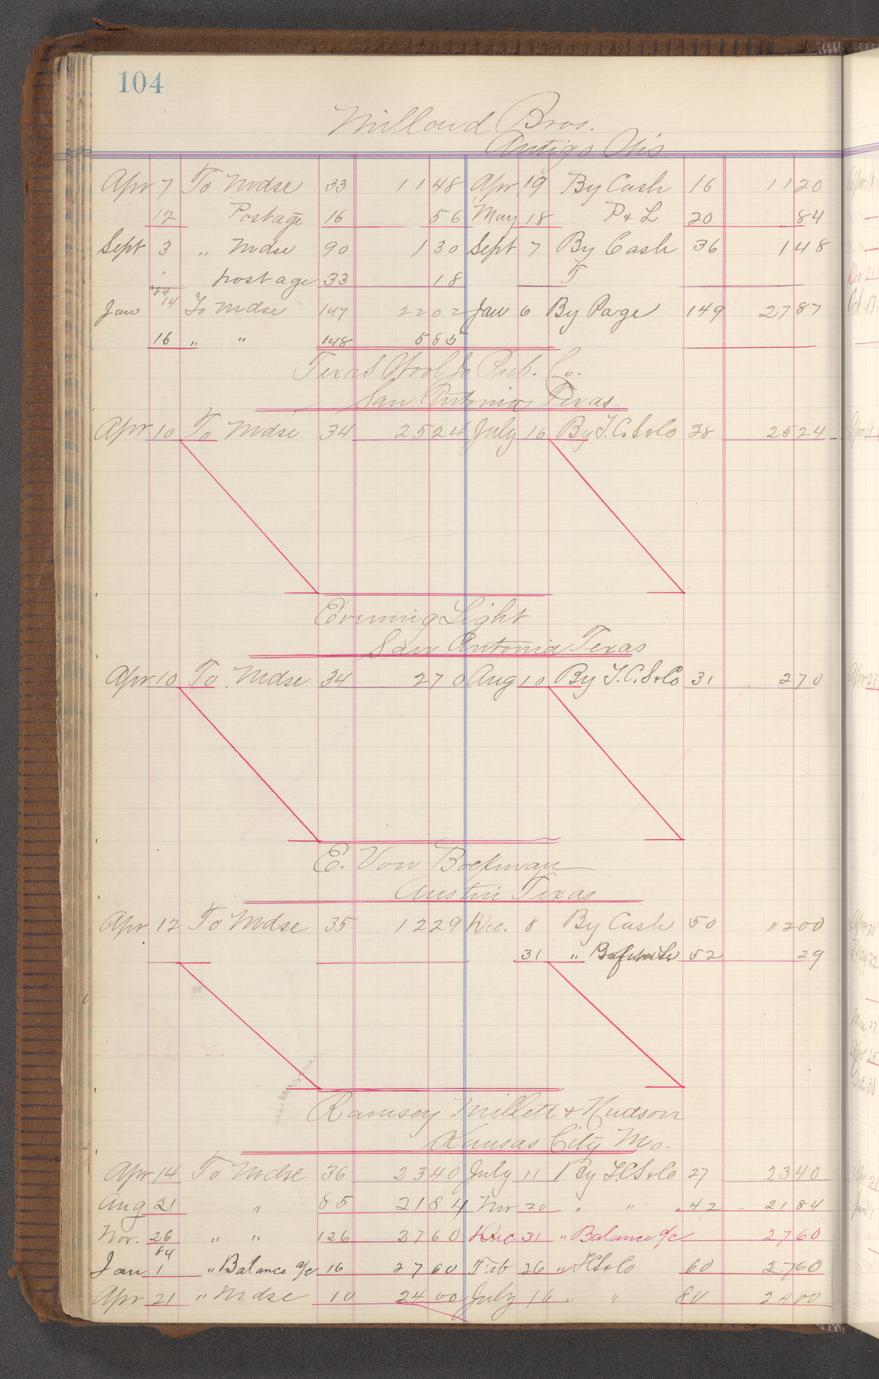 104
Millard Bros.
Antigo Wis
Apr 7 To Mdse 33 11 48 Apr 19 By Cash 16 11 20
12 Postage 16 56 May 18 P & L 20 84
Sept 3 " Mdse 90 1 30 Sept 7 By Cash 36 1 48
postage 33 18 5
Jan 14 To Mdse 147 22 02 Jan 6 By Page 149 27 87
16 " " 148 5 85
Texas Pub. Co.
San Antonio Texas
Apr 10 To Mdse 34 25 24 July 16 By T.C.S&Co 28 25 24
Evening Light
San Antonia Texas
Apr 10 To Mdse 34 2 70 Aug 10 By T.C.S&Co 31 2 70
E. Von
Austin Texas
Apr 12 To Mdse 35 12 29 Dec. 8 By Cash 50 12 00
31 " 52 29
Ramsey Millett & Hudson
Kansas City Mo.
Apr 14 To Mdse 36 23 40 July 11 By T.C.S&Co 27 23 40
Aug 21 " 85 21 84 Nov 20 " " 42 21 84
Nov. 26 " " 126 27 60 Dec 31 " Balance a/c 27 60
84
Jan 1 " Balance a/c 16 27 60 Feb 26 " 60 27 60
Apr 21 " Mdse 10 24 00 July 16 " " 80 24 00